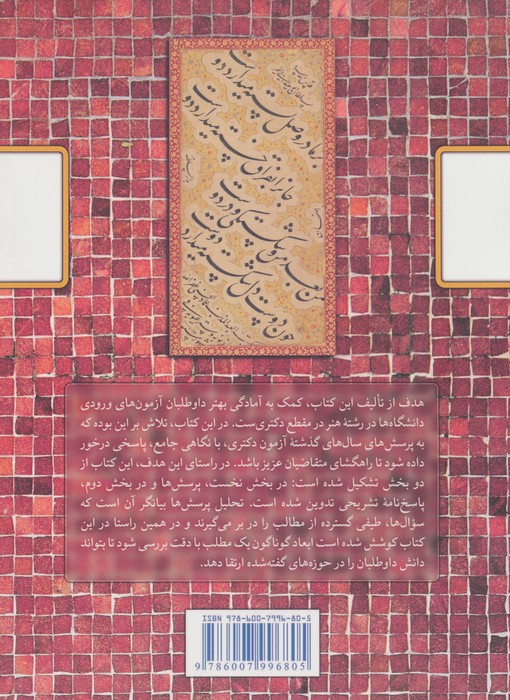 بر ما در وصل بسته میدارد دوست
جان را بفراق خسته میدارد دوست
من بعد من و شکستگی و در دوست
چون دوست دل شکسته میدارد دوست
هدف از تألیف این کتاب، کمک به آمادگی بهتر داوطلبان آزمون‌های ورودی
دانشگاه‌ها در رشتهٔ هنر در مقطع دکتری‌ست. در این کتاب، تلاش بر این بوده که
به پرسش‌های سال‌های گذشتهٔ آزمون دکتری، با نگاهی جامع، پاسخی درخور
داده شود تا راهگشای متقاضیان عزیز باشد. در راستای این هدف، این کتاب از
دو بخش تشکیل شده است: در بخش نخست، پرسش‌ها و در بخش دوم،
پاسخ‌نامهٔ تشریحی تدوین شده است. تحلیل پرسش‌ها بیانگر آن است که
سؤال‌ها، طیفی گسترده از مطالب را در بر می‌گیرند و در همین راستا در این
کتاب کوشش شده است ابعاد گوناگون یک مطلب با دقت بررسی شود تا بتواند
دانش داوطلبان را در حوزه‌های گفته‌شده ارتقا دهد.
ISBN 978-600-7996-80-5
9 786007 996805